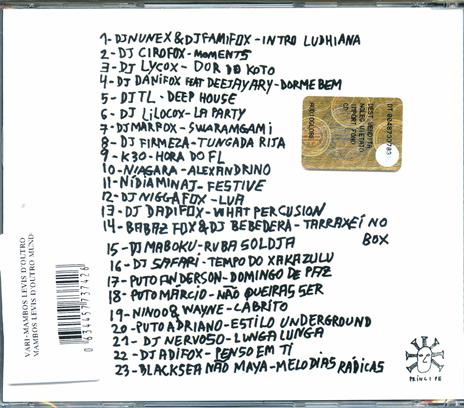 1- DJ NUNEX & DJ FAMIFOX - INTRO LUDHIANA
2- DJ CIROFOX - MOMENTS
3- DJ LYCOX - DOR DO KOTO
4- DJ DANIFOX FEAT DEEJAY ARY - DORME BEM
5- DJ TL - DEEP HOUSE
6- DJ LILOCOX - LA PARTY
7- DJ MARFOX - SWARAMGAMI
8- DJ FIRMEZA - TUNGADA RIJA
9- K30 - HORA DO FL
10- NIAGARA - ALEXANDRINO
11- NÍDIA MINAJ - FESTIVE
12- DJ NIGGA FOX - LUA
13- DJ DADIFOX - WHAT PERCUSION
14- BABAZ FOX & DJ BEBEDERA - TARRAXEI NO
BOX
15- DJ MABOKU - RUBA SOLDJA
16- DJ SAFARI - TEMPO DO XAKAZULU
17- PUTO ANDERSON - DOMINGO DE PAZ
18- PUTO MÁRCIO - NÃO QUEIRAS SER
19- NINOO & WAYNE - CABRITO
20- PUTO ADRIANO - ESTILO UNDERGROUND
21- DJ NERVOSO - LUNGA LUNGA
22- DJ ADIFOX - PENSO EM TI
23- BLACKSEA NÃO MAYA - MELODIAS RÁDICAS
VARI-MAMBOS LEVIS D'OUTRO
MAMBOS LEVIS D'OUTRO MUND
0 634457 737426
AUDIOGLOBE
CD
DT 00468737703
PRÍNCIPE